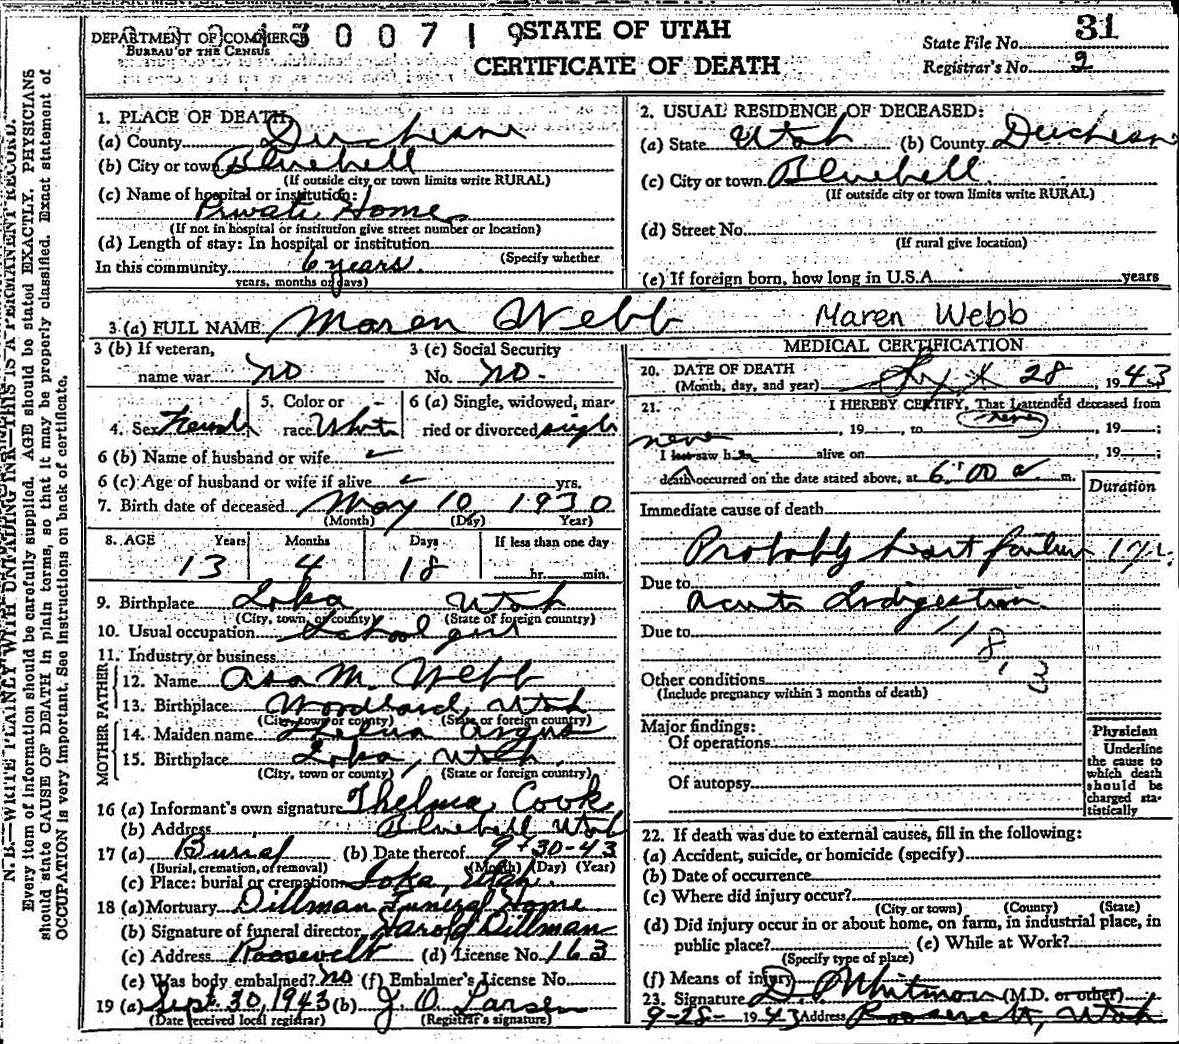 DEPARTMENT OF COMMERCE
BUREAU OF THE CENSUS
300719
STATE OF UTAH
CERTIFICATE OF DEATH
State File No. 31
Registrar's No. 2
N. B.—WRITE PLAINLY WITH UNFADING INK—THIS IS A PERMANENT RECORD.
Every item of information should be carefully supplied. AGE should be stated EXACTLY. PHYSICIANS
should state CAUSE OF DEATH in plain terms, so that it may be properly classified. Exact statement of
OCCUPATION is very important. See instructions on back of certificate.
1. PLACE OF DEATH
(a) County Duchesne
(b) City or town Bluebell
(If outside city or town limits write RURAL)
(c) Name of hospital or institution:
Private Home
(If not in hospital or institution give street number or location)
(d) Length of stay: In hospital or institution
(Specify whether
In this community 6 years.
years, months or days)
2. USUAL RESIDENCE OF DECEASED:
(a) State Utah (b) County Duchesne
(c) City or town Bluebell
(If outside city or town limits write RURAL)
(d) Street No.
(If rural give location)
(e) If foreign born, how long in U.S.A. years
3 (a) FULL NAME Maren Webb Maren Webb
3 (b) If veteran,
name war no
3 (c) Social Security
No. no.
4. Sex Female
5. Color or
race White
6 (a) Single, widowed, mar-
ried or divorced single
6 (b) Name of husband or wife
6 (c) Age of husband or wife if alive yrs.
7. Birth date of deceased May 10, 1930
(Month) (Day) Year)
8. AGE Years Months Days If less than one day
13 4 18 hr. min.
9. Birthplace Ioka Utah
(City, town, or county) (State of foreign country)
10. Usual occupation School girl
11. Industry or business
FATHER
12. Name Asa M. Webb
13. Birthplace Utah
(City, town or county) (State or foreign country)
MOTHER
14. Maiden name Thelma
15. Birthplace Ioka, Utah
(City, town or county) (State or foreign country)
16 (a) Informant's own signature Thelma Cook
(b) Address Bluebell Utah
17 (a) Burial (b) Date thereof 9-30-43
(Burial, cremation, or removal) (Month) (Day) (Year)
(c) Place: burial or cremation Ioka, Utah.
18 (a) Mortuary Dillman Funeral Home
(b) Signature of funeral director Harold Dillman
(c) Address Roosevelt (d) License No. 163
(e) Was body embalmed? no (f) Embalmer's License No.
19 (a) Sept. 30, 1943 (b) J. O. Larsen
(Date received local registrar) (Registrar's signature)
MEDICAL CERTIFICATION
20. DATE OF DEATH
(Month, day, and year) Sept 28, 1943
21. I HEREBY CERTIFY, That I attended deceased from
never, 19 , to never, 19 ;
I last saw h alive on , 19 ;
death occurred on the date stated above, at 6:00 a m.
Duration
Immediate cause of death
Probably heart failure
Due to
Acute Indigestion
Due to
118.3
Other conditions
(Include pregnancy within 3 months of death)
Major findings:
Of operations
Of autopsy
Physician
Underline
the cause to
which death
should be
charged sta-
tistically
22. If death was due to external causes, fill in the following:
(a) Accident, suicide, or homicide (specify)
(b) Date of occurrence
(c) Where did injury occur?
(City or town) (County) (State)
(d) Did injury occur in or about home, on farm, in industrial place, in
public place? (e) While at Work?
(Specify type of place)
(f) Means of injury
23. Signature D. Whitmore (M.D. or other)
9-28-1943 Address Roosevelt, Utah